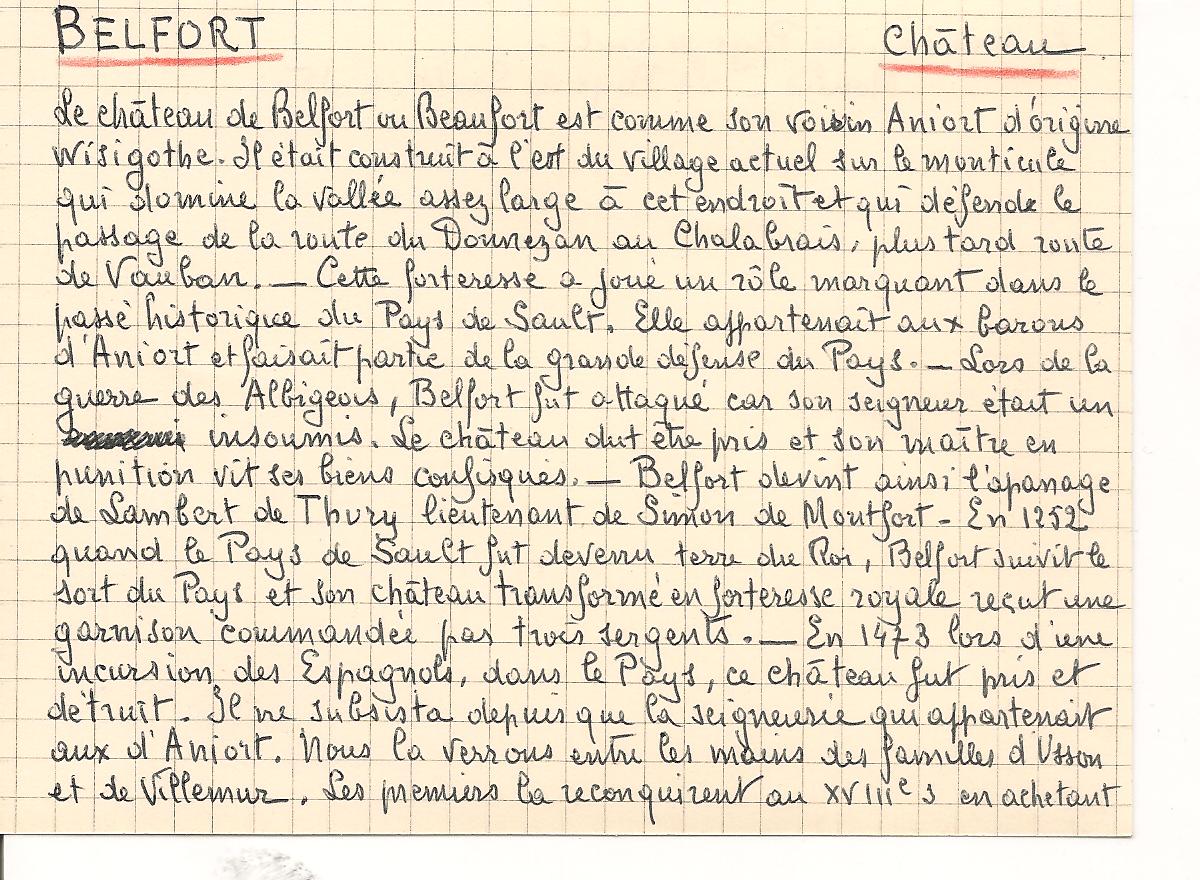 BELFORT Château
Le château de Belfort ou Beaufort est comme son voisin Aniort d'origine
Wisigothe. Il était construit à l'est du village actuel sur le monticule
qui domine la vallée assez large à cet endroit et qui défende le
passage de la route du Donnezan au Chalabrais, plus tard route
de Vauban. — Cette forteresse a joué un rôle marquant dans le
passé historique du Pays de Sault. Elle appartenait aux barons
d'Aniort et faisait partie de la grande défense du Pays. — Lors de la
guerre des Albigeois, Belfort fut attaqué car son seigneur était un
insoumis. Le château dut être pris et son maître en
punition vit ses biens confisqués. — Belfort devint ainsi l'apanage
de Lambert de Thury lieutenant de Simon de Montfort - En 1252
quand le Pays de Sault fut devenu terre du Roi, Belfort suivit le
sort du Pays et son château transformé en forteresse royale reçut une
garnison commandée pas trois sergents. — En 1473 lors d'une
incursion des Espagnols, dans le Pays, ce château fut pris et
détruit. Il ne subsista depuis que la seigneurie qui appartenait
aux d'Aniort. Nous la verrons entre les mains des familles d'Usson
et de Villemur. Les premiers la reconquirent au XVIIIe s en achetant